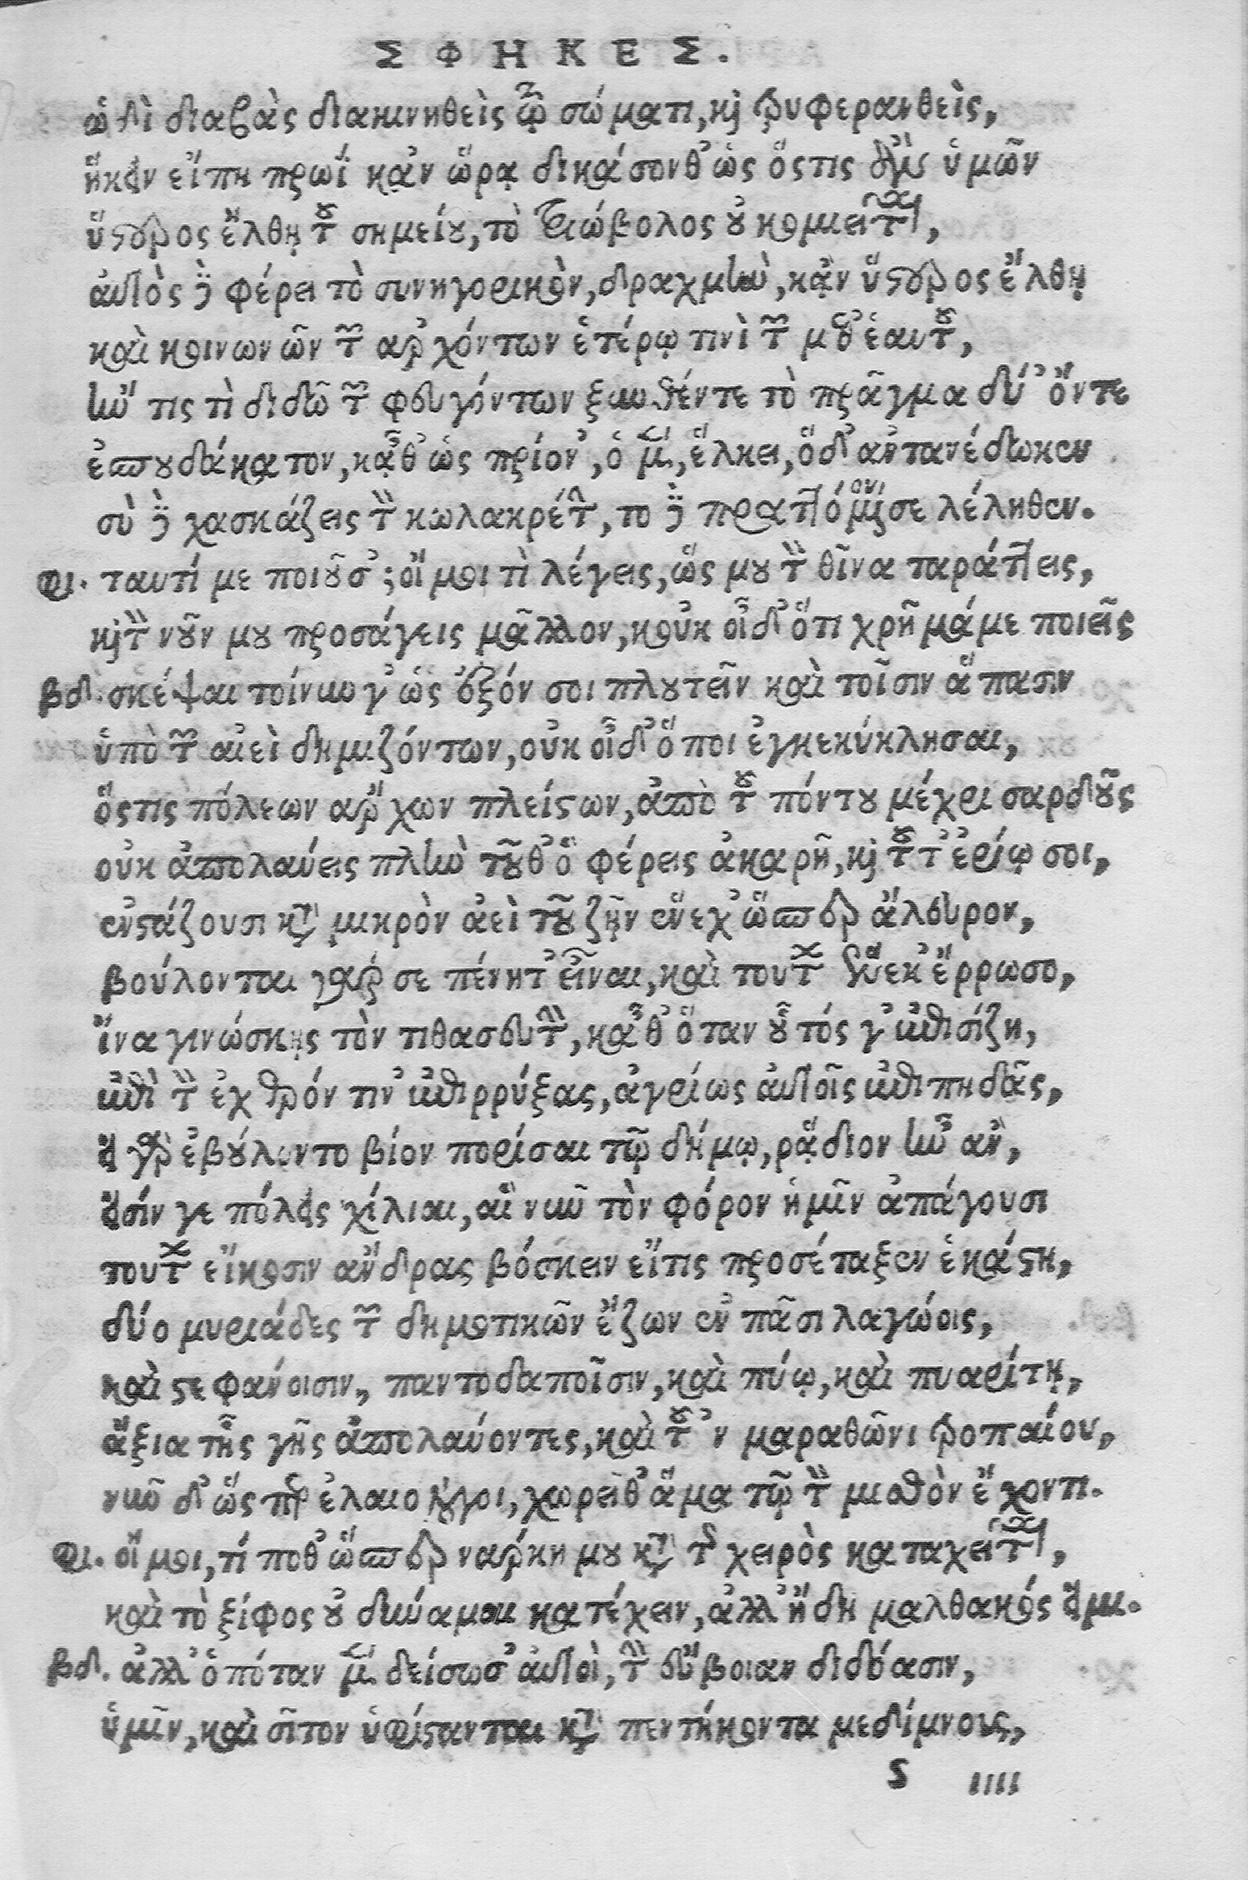 ΣΦΗΚΕΣ.
ὡδὶ διαβὰς διακινηθεὶς τῷ σώματι, καὶ τρυφερανθεὶς,
ἥκειν εἴπῃ πρωῒ κᾀν ὥρᾳ δικάσονθ᾽ ὡς ὅστις ἂν ὑμῶν
ὕστερος ἔλθῃ τοῦ σημείου, τὸ τριώβολος οὐ κομιεῖται,
αὐτὸς δὲ φέρει τὸ συνηγορικὸν, δραχμὴν, κᾂν ὕστερος ἔλθῃ
καὶ κοινωνῶν τῶν ἀρχόντων ἑτέρῳ τινὶ τῶν μεθ᾽ ἑαυτοῦ,
ἤν τις τὶ διδῶ τῶν φευγόντων ξυνθέντε τὸ πρᾶγμα δύ᾽ ὄντε
ἐσπουδάκατον, κᾆθ᾽ ὡς πρίον᾽, ὁ μὲν, ἕλκει, ὅδ᾽ ἀντανέδωκεν
σὺ δὲ χασκάζεις τὸν κωλακρέτην, το δὲ πραττόμενόν σε λέληθεν.
φι. ταυτί με ποιοῦσ᾽; οἴμοι τὶ λέγεις, ὥς μου τὸν θῖνα ταράττεις,
καὶ τὸν νοῦν μου προσάγεις μᾶλλον, κοὐκ οἶδ᾽ ὅτι χρῆμά με ποιεῖς
βδ. σκέψαι τοίνυν γ᾽ ὡς ἐξόν σοι πλουτεῖν καὶ τοῖσιν ἅπασιν
ὑπὸ τῶν αἰεὶ δημιζόντων, οὐκ οἶδ᾽ ὅποι ἐγκεκύκλησαι,
ὅστις πόλεων ἄρχων πλείστων, ἀπὸ τοῦ πόντου μέχρι σαρδοῦς
οὐκ ἀπολαύεις πλὴν τοῦθ᾽ ὃ φέρεις ἀκαρῆ, καὶ τοῦτ᾽ ἐρίῳ σοι,
ἐνστάζουσι κατὰ μικρὸν ἀεὶ τοῦ ζῇν ἕνεχ᾽ ὥσπερ ἄλευρον,
βούλονται γάρ σε πένητ᾽ εἶναι, καὶ τούτων οὕνεκ᾽ ἔρρωσο,
ἵνα γινώσκῃς τὸν τιθασευτὴν, κᾆθ᾽ ὅταν οὗτός γ᾽ ἐπισίζῃ,
ἐπὶ τὸν ἐχθρόν τιν᾽ ἐπιρρύξας, ἀγρίως αὐτοῖς ἐπιπηδᾷς,
εἰ γὰρ ἐβούλοντο βίον πορίσαι τῷ δήμῳ, ῥᾴδιον ἦν ἂν,
εἰσίν γε πόλεις χίλιαι, αἳ νῦν τὸν φόρον ἡμῖν ἀπάγουσι
τούτων εἴκοσιν ἄνδρας βόσκειν εἴτις προσέταξεν ἑκάστῃ,
δύο μυριάδες τῶν δημοτικῶν ἔζων ἐν πᾶσι λαγώοις,
καὶ στεφάνοισιν, παντοδαποῖσιν, καὶ πύῳ, καὶ πυαρίτῃ,
ἄξια τῆς γῆς ἀπολαύοντες, καὶ τοῦ ᾽ν μαραθῶνι τροπαίου,
νῦν δ᾽ ὥσπερ ἐλαιολόγοι, χωρεῖθ᾽ ἅμα τῷ τὸν μισθὸν ἔχοντι.
φι. οἴμοι, τί ποθ᾽ ὥσπερ νάρκη μου κατὰ τῆς χειρὸς καταχεῖται,
καὶ τὸ ξίφος οὐ δύναμαι κατέχειν, ἀλλ᾽ ἤδη μαλθακός εἰμι.
βδ. ἀλλ᾽ ὁπόταν μὲν δείσωσ᾽ αὐτοὶ, τὴν εὔβοιαν διδόασιν,
ὑμῖν, καὶ σῖτον ὑφίστανται κατὰ πεντήκοντα μεδίμνους,
S iiii